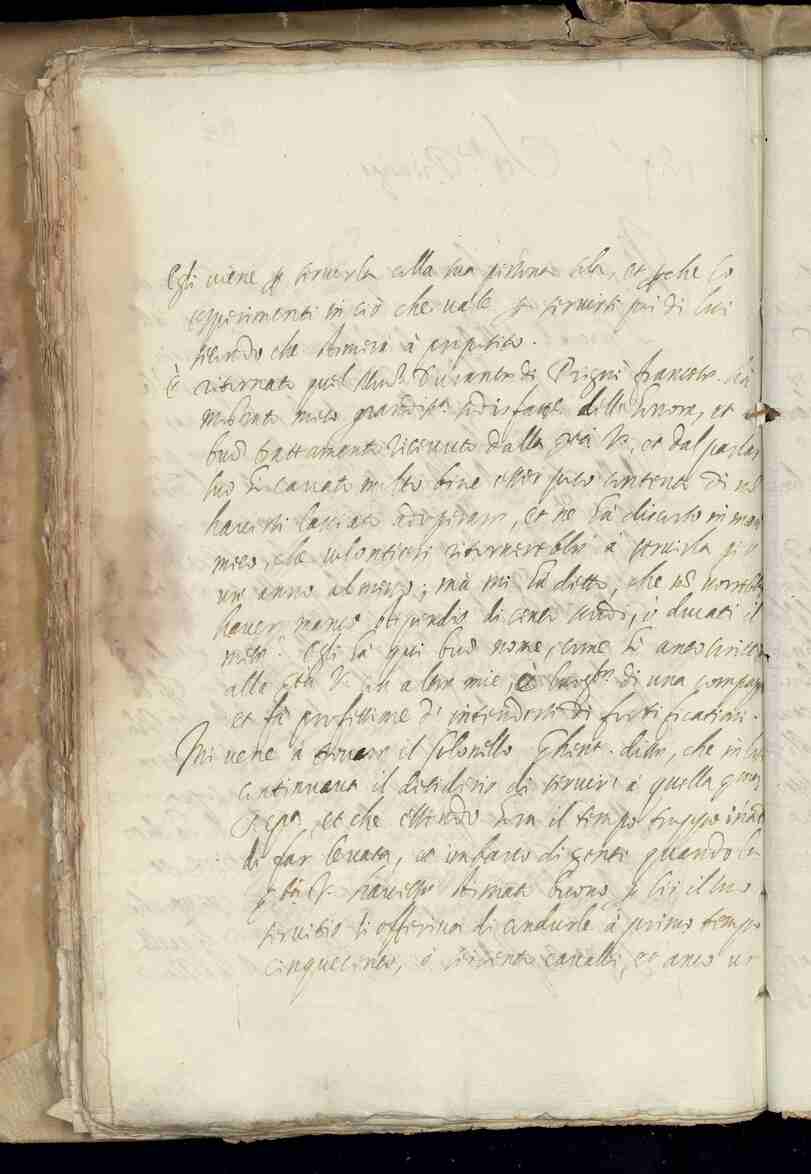 Egli viene p servirla colla sua persona sola, et pche lo
esperimenti in ciò che vale p servirsi poi di lui
secondo che stimerà à proposito.
È ritornato quel Durante di francese hà
mostrato meco grandiss.ª sodisfatt.e dell'honore, et
buō trattamento ricevuto dalla Stà V.ª, et dal parlar
suo hò cavato molto bene esser poco contento di nō
haversi lasciato adoperare, et ne hà discorso in modo
meco, che volontieri ritornerebbe à servirla p
un anno almeno; mà mi hà detto, che nō vorrebbe
haver manco stipendio di cento scudi, ò ducati il
mese. Egli hà qui buō nome, come hò anco scritto
alla Stà V.ª in altre mie, è di una compag
et fà professione d'intendersi di fortificationi.
Mi vene à trovare il Colonello Ghent. disse, che in lui
continuava il desiderio di servire à quella
Repª, et che essendo hora il tempo troppo inanzi
di far levata, et imbarco di gente quando la
Stà V.ª havesse stimato buono p lei il suo
servitio si offeriva di condurle à primo tempo
cinquecento, ò seicento cavalli, et anco un